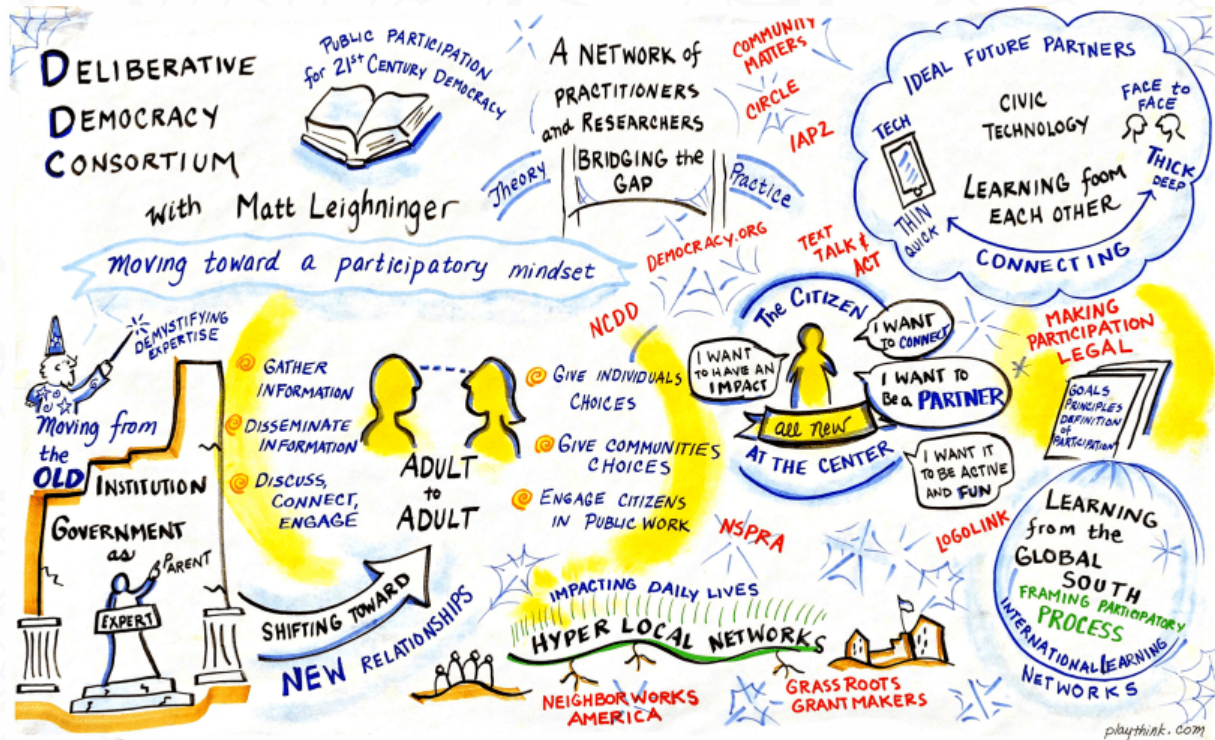 DELIBERATIVE
DEMOCRACY
CONSORTIUM
with Matt Leighninger
PUBLIC PARTICIPATION
for 21st CENTURY DEMOCRACY
A NETWORK of
PRACTITIONERS
and RESEARCHERS
BRIDGING the
GAP
Theory
Practice
COMMUNITY
MATTERS
CIRCLE
IAP2
DEMOCRACY.ORG
TEXT
TALK &
ACT
NCDD
IDEAL FUTURE PARTNERS
CIVIC
TECHNOLOGY
TECH
THIN
QUICK
FACE to
FACE
THICK
DEEP
LEARNING foom
EACH OTHER
CONNECTING
moving toward a participatory mindset
DEMYSTIFYING
EXPERTISE
Moving from
the
OLD
INSTITUTION
GOVERNMENT
as
PARENT
EXPERT
GATHER
INFORMATION
DISSEMINATE
INFORMATION
DISCUSS,
CONNECT,
ENGAGE
ADULT
to
ADULT
GIVE INDIVIDUALS
CHOICES
GIVE COMMUNITIES
CHOICES
ENGAGE CITIZENS
IN PUBLIC WORK
SHIFTING TOWARD
NEW RELATIONSHIPS
The CITIZEN
I WANT
TO HAVE AN
IMPACT
I WANT
TO CONNECT
I WANT TO
Be a PARTNER
all new
AT THE CENTER
I WANT IT
TO BE ACTIVE
AND FUN
MAKING
PARTICIPATION
LEGAL
GOALS
PRINCIPLES
DEFINITION
of
PARTICIPATION
NSPRA
LOGOLINK
LEARNING
from the
GLOBAL
SOUTH
FRAMING PARTICIPATORY
PROCESS
INTERNATIONAL LEARNING
NETWORKS
IMPACTING DAILY LIVES
HYPER LOCAL NETWORKS
NEIGHBORWORKS
AMERICA
GRASSROOTS
GRANTMAKERS
playthink.com